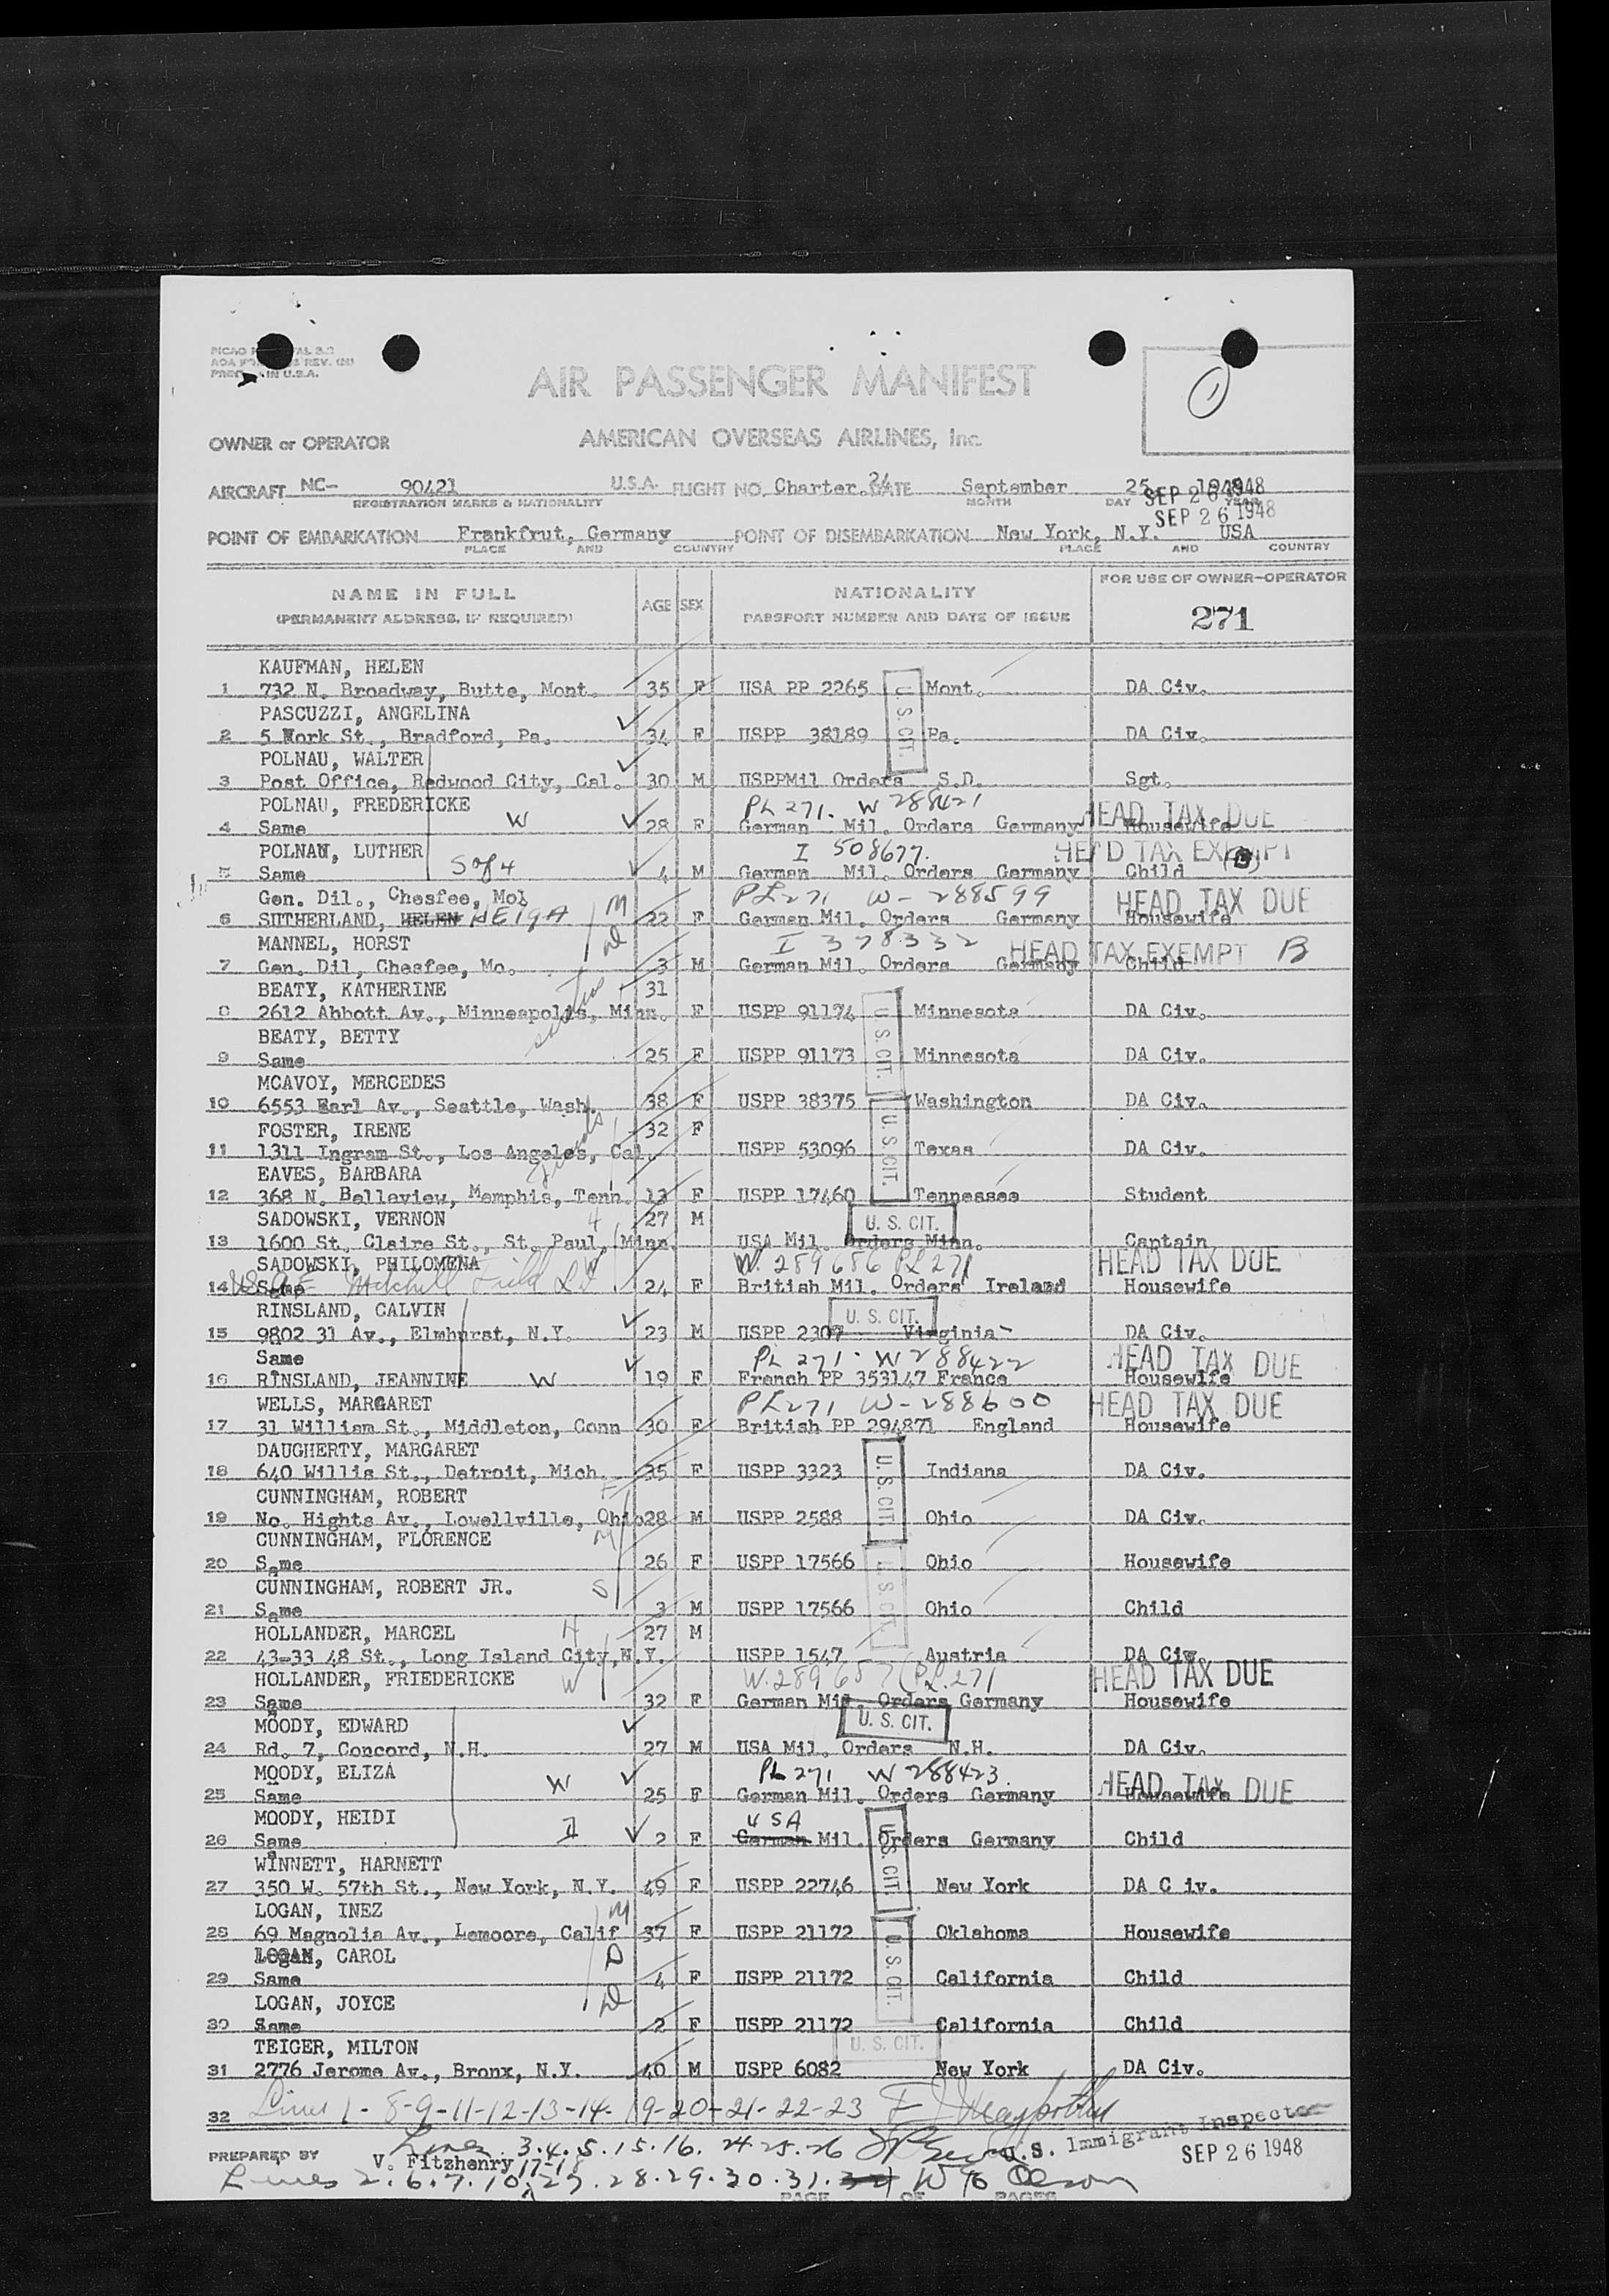 PRINTED IN U.S.A.
AIR PASSENGER MANIFEST
1
OWNER or OPERATOR AMERICAN OVERSEAS AIRLINES, Inc.
AIRCRAFT NC- 90421 U.S.A. FLIGHT NO. Charter 24 DATE September 25 1948
REGISTRATION MARKS & NATIONALITY MONTH DAY YEAR
SEP 26 1948
SEP 26 1948
POINT OF EMBARKATION Frankfrut, Germany POINT OF DISEMBARKATION New York, N.Y. USA
PLACE AND COUNTRY PLACE AND COUNTRY
NAME IN FULL AGE SEX NATIONALITY FOR USE OF OWNER-OPERATOR
(PERMANENT ADDRESS, IF REQUIRED) PASSPORT NUMBER AND DATE OF ISSUE 271
KAUFMAN, HELEN
1 732 N. Broadway, Butte, Mont. 35 F USA PP 2265 U.S. CIT. Mont. DA Civ.
PASCUZZI, ANGELINA
2 5 Work St., Bradford, Pa. 34 F USPP 38189 Pa. DA Civ.
POLNAU, WALTER
3 Post Office, Redwood City, Cal. 30 M USPPMil Orders S.D. Sgt.
POLNAU, FREDERICKE PL 271. W 288421 HEAD TAX DUE
4 Same W 28 F German Mil. Orders Germany Housewife
POLNAU, LUTHER I 508677. HEAD TAX EXEMPT (B)
5 Same S of 4 4 M German Mil. Orders Germany Child
Gen. Dil., Chesfee, Mo. PL271 W-288599 HEAD TAX DUE
6 SUTHERLAND, HELEN HElgA M 22 F German Mil. Orders Germany Housewife
MANNEL, HORST I 378332 HEAD TAX EXEMPT B
7 Gen. Dil, Chesfee, Mo. 3 M German Mil. Orders Germany Child
BEATY, KATHERINE 31
8 2612 Abbott Av., Minneapolis, Minn. F USPP 91174 U.S. CIT. Minnesota DA Civ.
BEATY, BETTY sisters
9 Same 25 F USPP 91173 Minnesota DA Civ.
MCAVOY, MERCEDES
10 6553 Earl Av., Seattle, Wash. 38 F USPP 38375 Washington DA Civ.
FOSTER, IRENE 32 F
11 1311 Ingram St., Los Angeles, Cal. USPP 53096 U.S. CIT. Texas DA Civ.
EAVES, BARBARA friends
12 368 N. Belleview, Memphis, Tenn. 13 F USPP 17460 Tennessee Student
SADOWSKI, VERNON 27 M U. S. CIT.
13 1600 St. Claire St., St. Paul, Minn. USA Mil. Orders Minn. Captain
SADOWSKI, PHILOMENA W W. 289656 PL 271 HEAD TAX DUE
14 Same Mitchell Field L.I. 24 F British Mil. Orders Ireland Housewife
RINSLAND, CALVIN U. S. CIT.
15 9802 31 Av., Elmhurst, N.Y. 23 M USPP 2307 Virginia DA Civ.
Same PL 271. W 288422 HEAD TAX DUE
16 RINSLAND, JEANNINE W 19 F French PP 353147 France Housewife
WELLS, MARGARET PL271 W-288600 HEAD TAX DUE
17 31 William St., Middleton, Conn 30 F British PP 294871 England Housewife
DAUGHERTY, MARGARET
18 640 Willis St., Detroit, Mich. 35 F USPP 3323 U.S. CIT Indiana DA Civ.
CUNNINGHAM, ROBERT F
19 No. Hights Av., Lowellville, Ohio 28 M USPP 2588 Ohio DA Civ.
CUNNINGHAM, FLORENCE M
20 Same 26 F USPP 17566 U.S. CIT. Ohio Housewife
CUNNINGHAM, ROBERT JR. S
21 Same 3 M USPP 17566 Ohio Child
HOLLANDER, MARCEL H 27 M
22 43-33 48 St., Long Island City, N.Y. USPP 1547 Austria DA Civ.
HOLLANDER, FRIEDERICKE W W.289657 (PL.271 HEAD TAX DUE
23 Same 32 F German Mil. Orders Germany Housewife
MOODY, EDWARD U. S. CIT.
24 Rd. 7, Concord, N.H. 27 M USA Mil. Orders N.H. DA Civ.
MOODY, ELIZA PL 271 W 288423. HEAD TAX DUE
25 Same W 25 F German Mil. Orders Germany Housewife
MOODY, HEIDI USA
26 Same D 2 F German Mil. Orders Germany Child
WINNETT, HARNETT U.S. CIT.
27 350 W. 57th St., New York, N.Y. 49 F USPP 22746 New York DA C iv.
LOGAN, INEZ M
28 69 Magnolia Av., Lemoore, Calif 37 F USPP 21172 Oklahoma Housewife
LOGAN, CAROL D U.S. CIT.
29 Same 4 F USPP 21172 California Child
LOGAN, JOYCE D
30 Same 2 F USPP 21172 California Child
TEIGER, MILTON U. S. CIT.
31 2776 Jerome Av., Bronx, N.Y. 40 M USPP 6082 New York DA Civ.
32 Lines 1-8-9-11-12-13-14-19-20-21-22-23
Lines 3.4.5.15.16. 24.25.26 U.S. Immigrant Inspector
PREPARED BY V. Fitzhenry 17-18 SEP 26 1948
Lines 2.6.7.10.27.28.29.30.31. Olson
PAGE OF PAGES